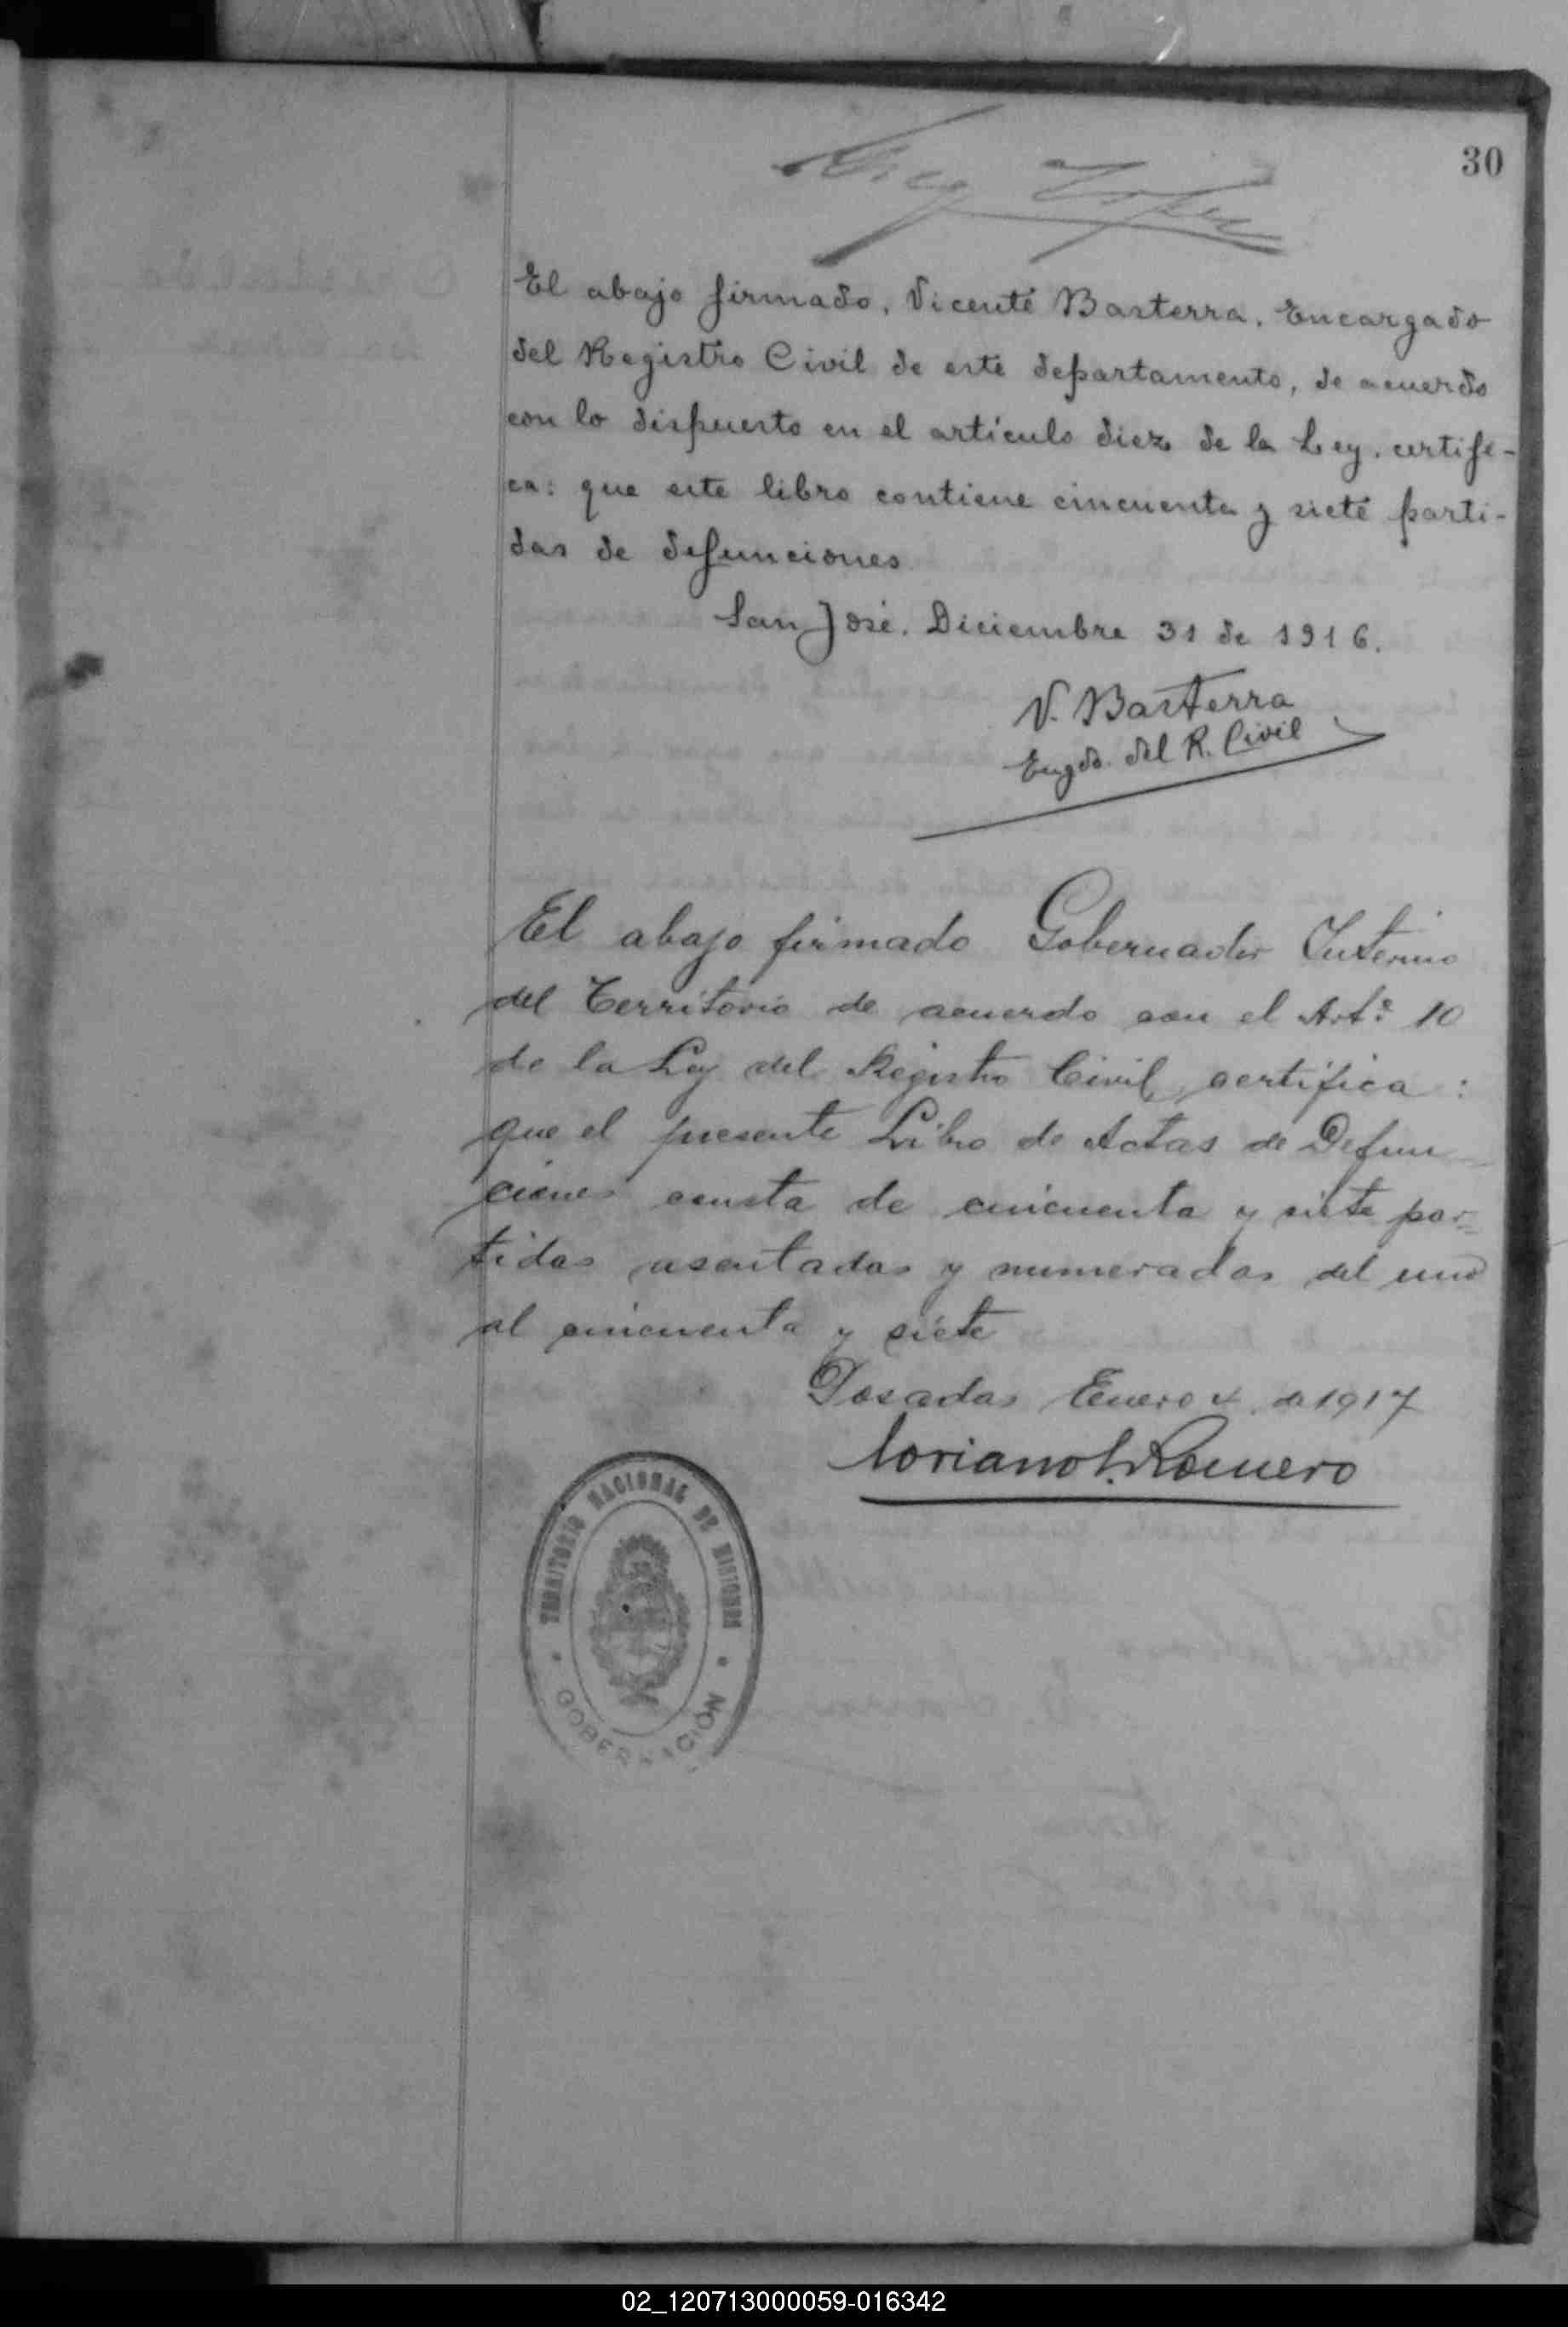 30
El abajo firmado, Vicente Basterra, Encargado
del Registro Civil de este departamento, de acuerdo
con lo dispuesto en el artículo diez de la Ley, certifi-
ca: que este libro contiene cincuenta y siete parti-
das de defunciones.
San José, Diciembre 31 de 1916.
V. Basterra
Engdo. del R. Civil
El abajo firmado Gobernador Interino
del Territorio de acuerdo con el Artº 10
de la Ley del Registro Civil, certifica:
que el presente Libro de Actas de Defun
ciones consta de cincuenta y siete par=
tidas asentadas y numeradas del uno
al cincuenta y siete
Posadas Enero 4 de 1917
Romero
TERRITORIO NACIONAL DE MISIONES
GOBERNACIÓN
02_120713000059-016342